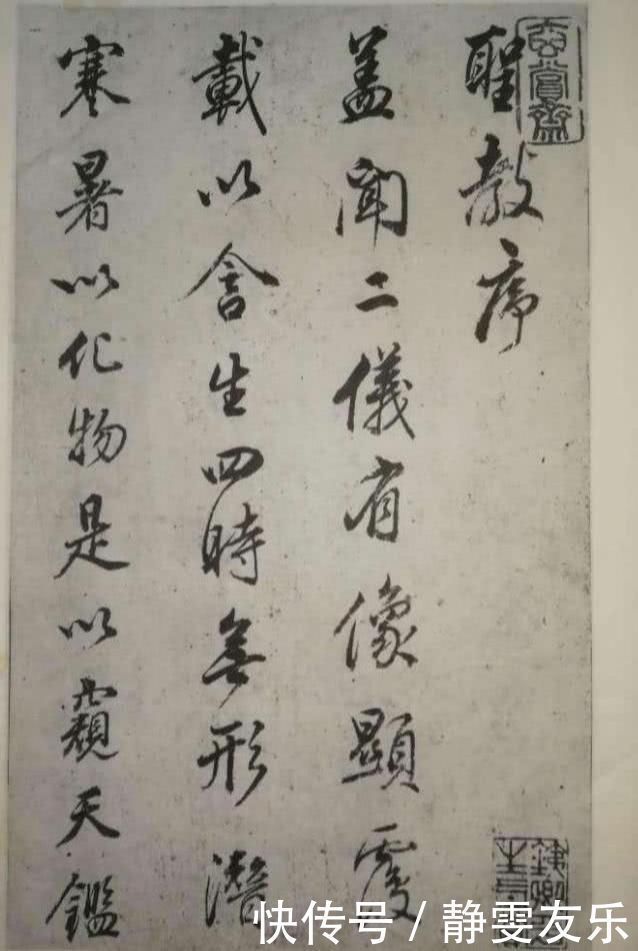 聖教序
盖聞二儀有像顯覆
載以含生四時無形潛
寒暑以化物是以窺天鑑
玄賞齋
快传号 / 静雯友乐